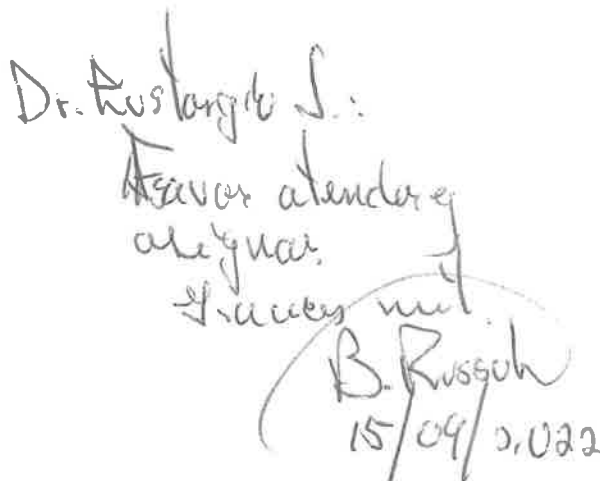 Dr. Rustorgio S.:
Favor atender y
asignar.
Gracias mil.
B. Russoh
15/09/2.022